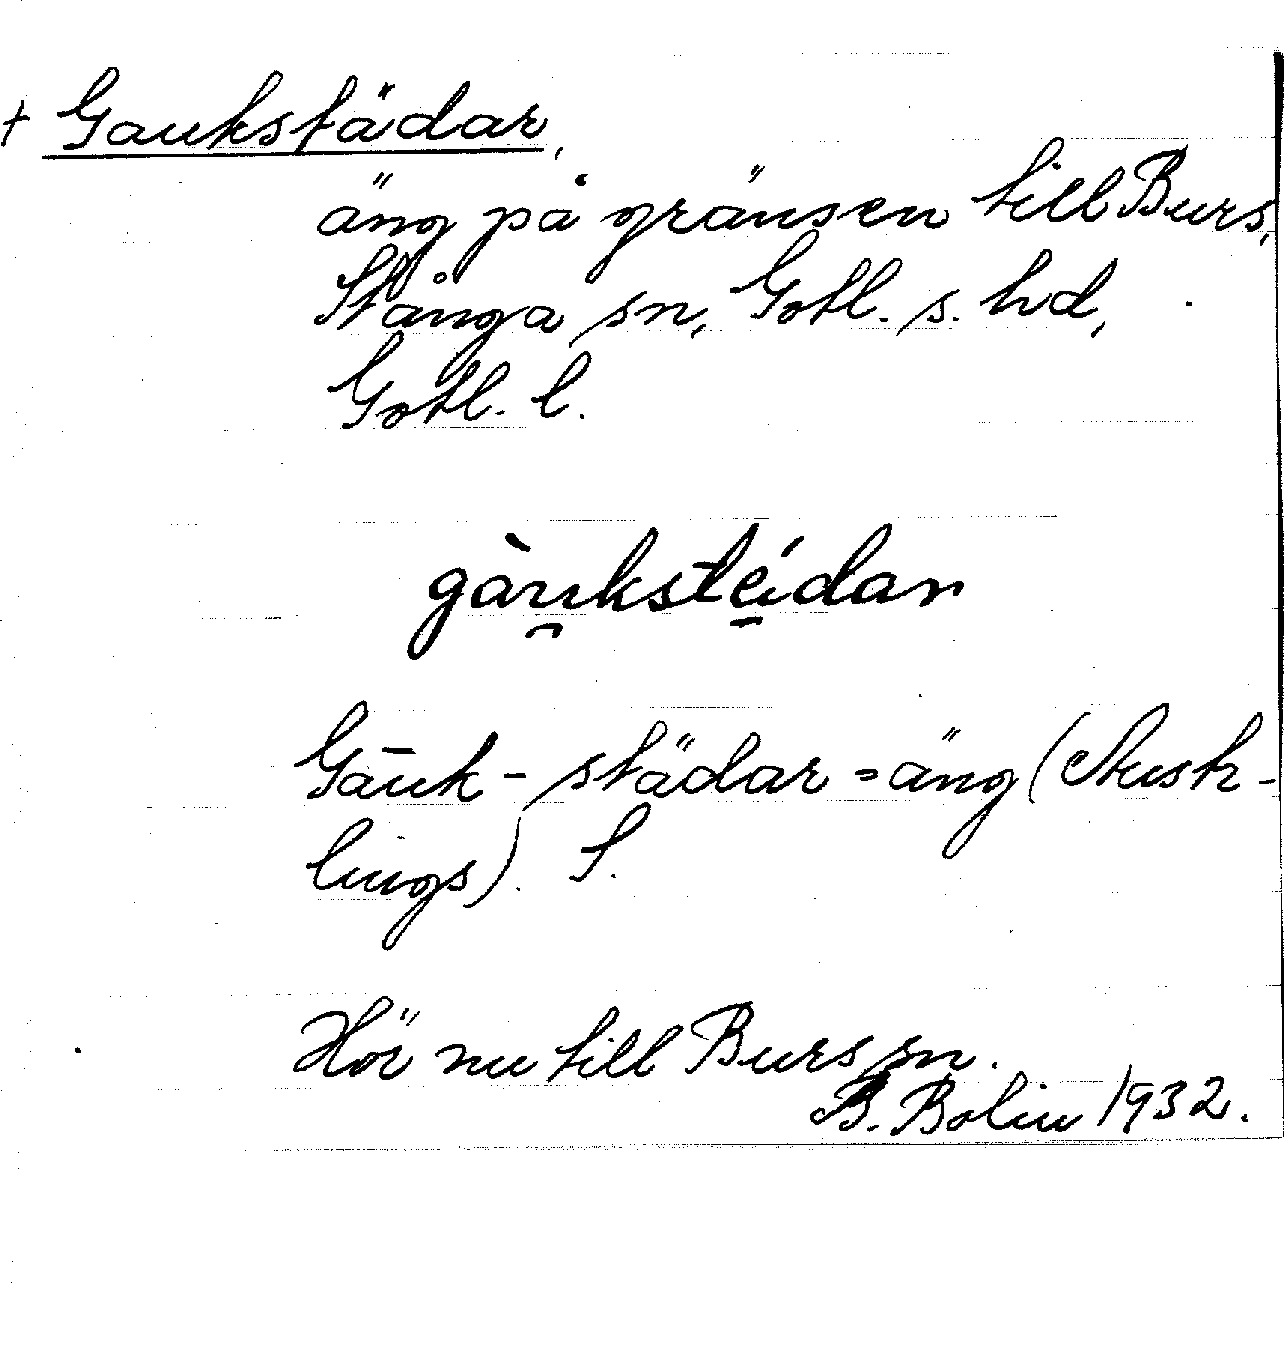 + Gaukstädar,
äng på gränsen till Burs,
Stånga sn, Gotl. s. hd,
Gotl. l.
gàu̯kstéi̯dar
Gāuk-städar=äng (Kusk-
lings). S.
Hör nu till Burs sn.
B. Bolin 1932.